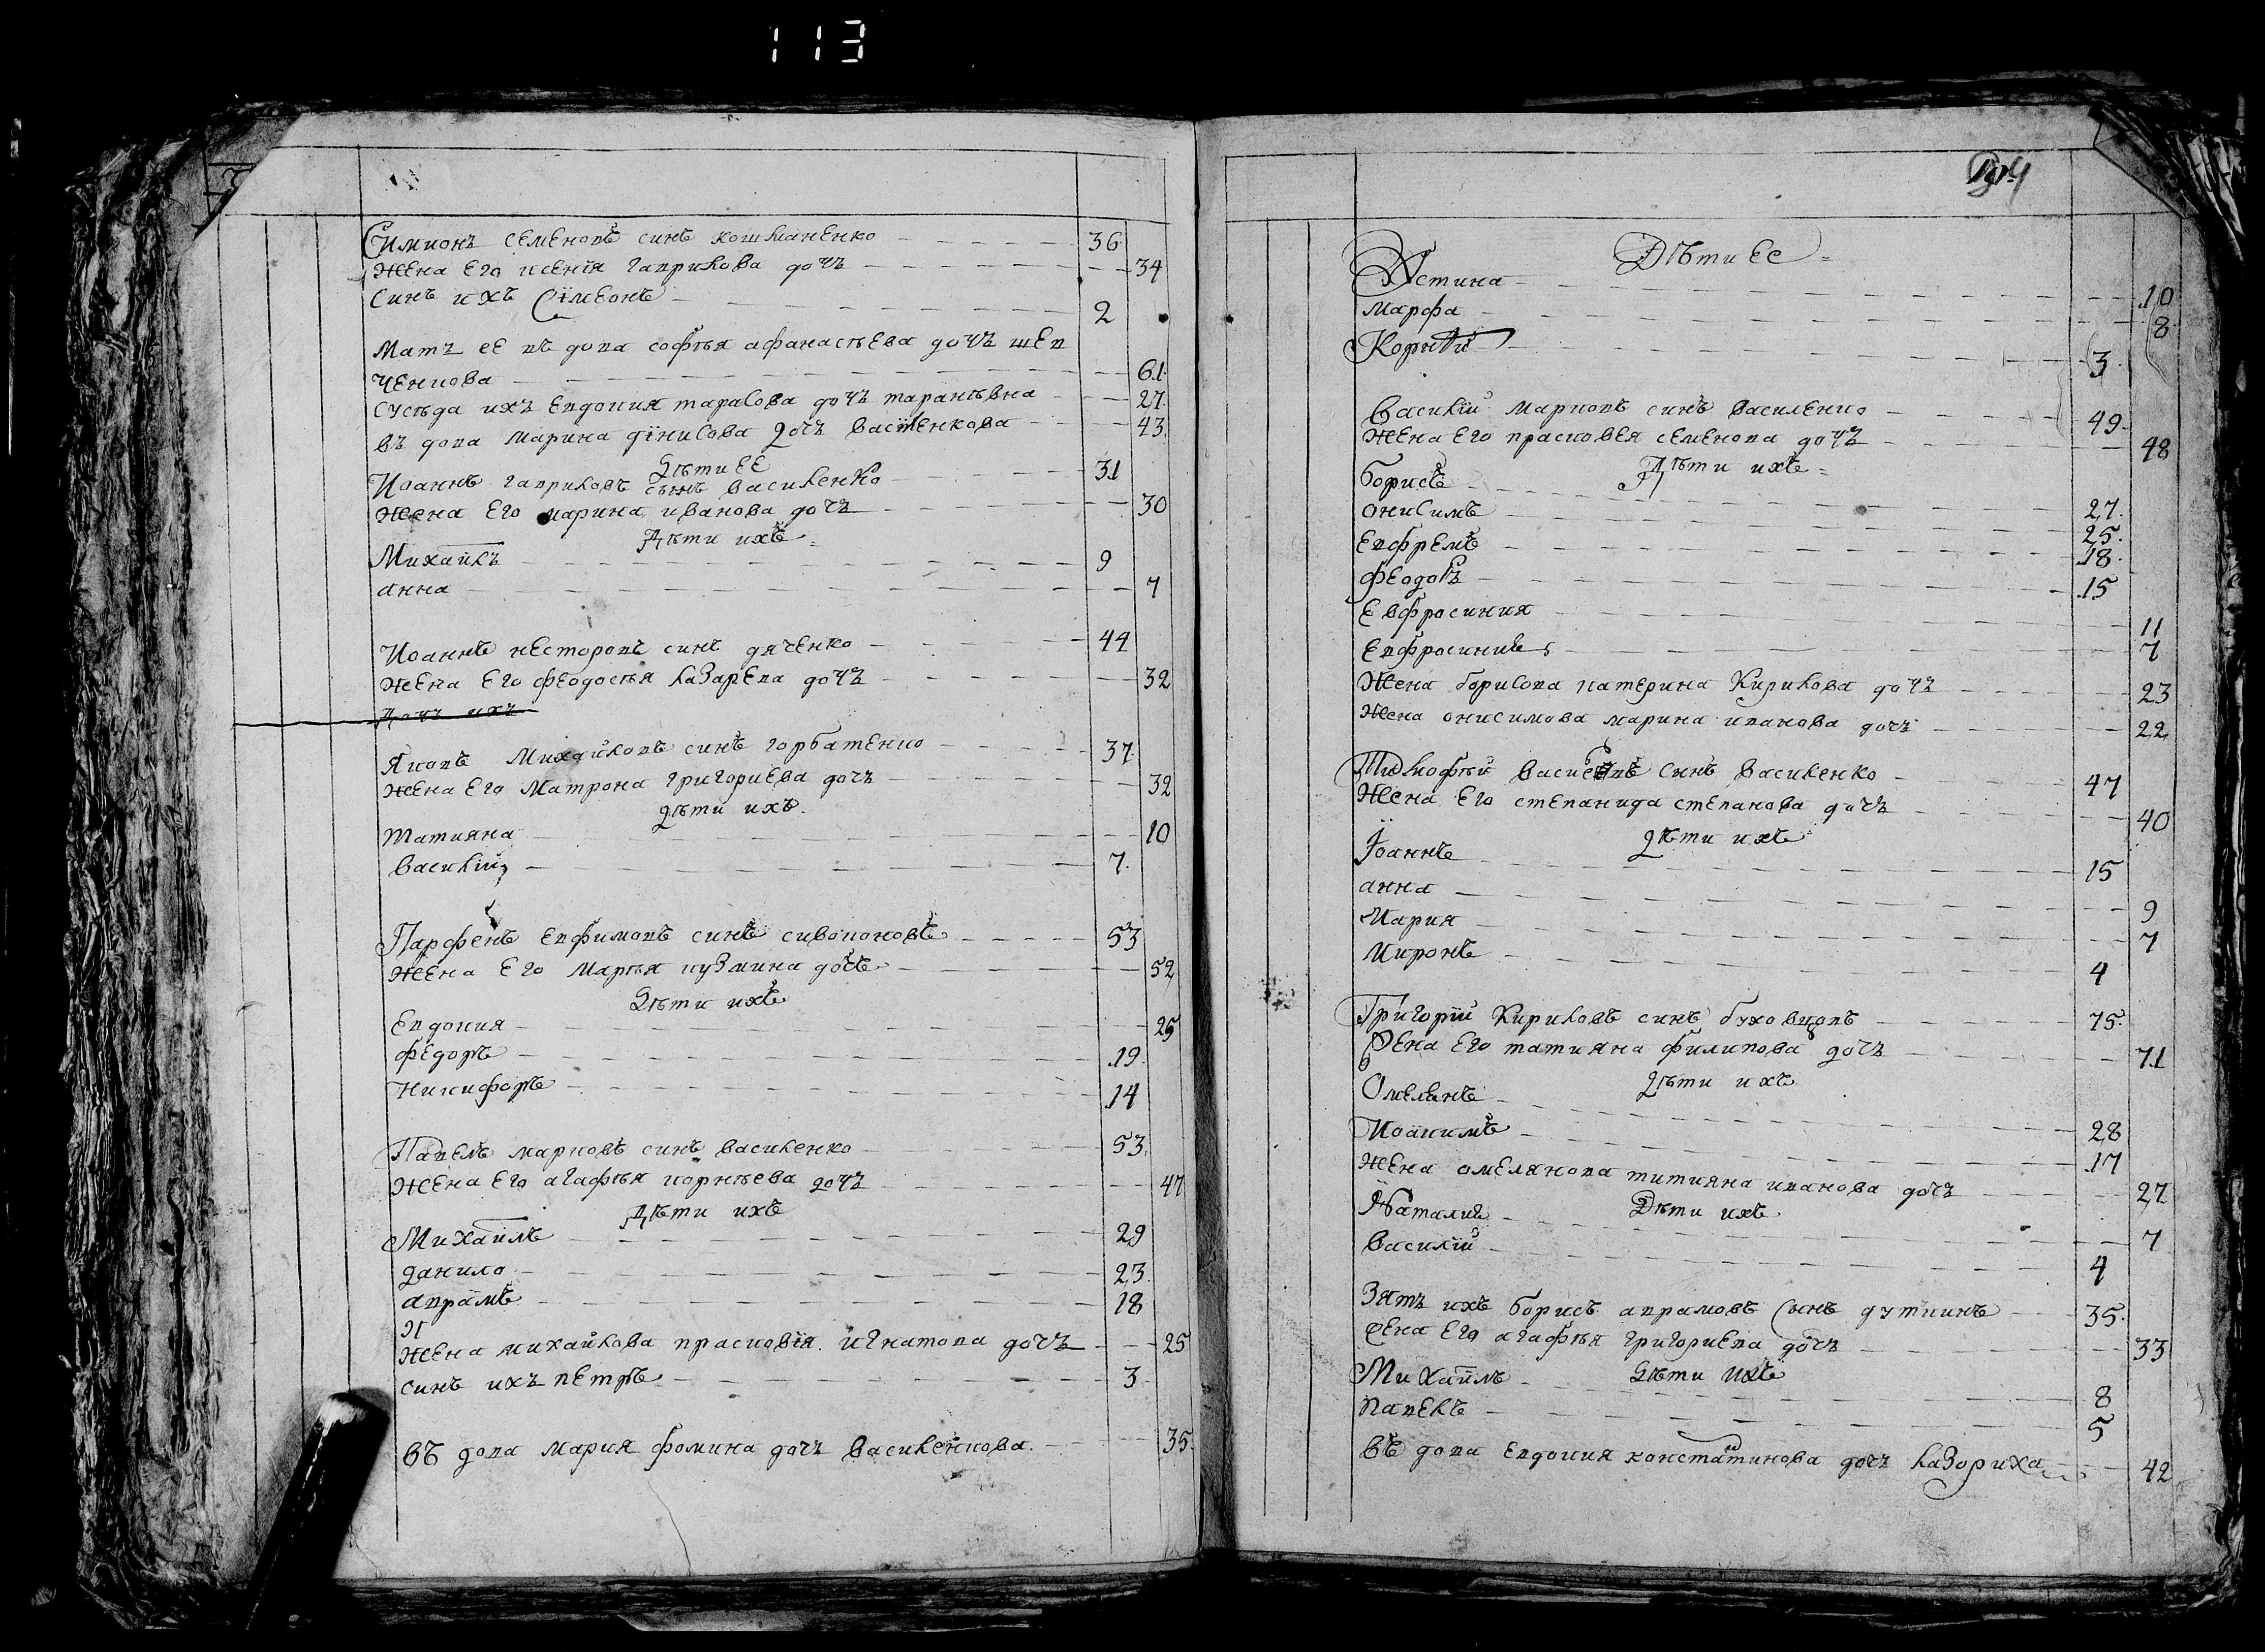 113
Симионъ семеновъ синъ кошманенко 36
жена его ксенія гаврилова дочъ 34
синъ ихъ Симеонъ 2
мать ее въ дова софья афанасьева дочъ шев
ченкова 61
сусѣда ихъ Евдокия тарасова дочъ таранѣвна 27
въ дова марина дїнисова дочъ василенкова 43
дѣти ее
Иоаннъ гавриловъ сынъ василенко 31
жена его марина иванова дочъ 30
Дѣти ихъ
Михайлъ 9
анна 7
Иоаннъ несторовъ синъ дяченко 44
жена его феодосья лазарева дочъ 32
дочъ ихъ
Яковъ Михайловъ синъ горбатенко 37
жена его Матрона григориева дочъ 32
дѣти ихъ
татияна 10
василій 7
Парфенъ евфимовъ синъ сивоконовъ 53
жена его марья кузмина дочъ 52
Дѣти ихъ
Евдокия 25
федоръ 19
никифоръ 14
Павелъ марковъ синъ василенко 53
жена его агафья корнѣева дочъ 47
Дѣти ихъ
Михаилъ 29
данило 23
аврамъ 18
жена михайлова прасковія игнатова дочъ 25
синъ ихъ петръ 3
въ дова мария фомина дочъ василенкова 35
Дѣти ее
Устина 10
марфа 8
Корнѣй 3
Василій марковъ синъ василенко 49
жена его прасковея семенова дочъ 48
Дѣти ихъ
борисъ 27
онисимъ 25
Евфремъ 18
феодоръ 15
Евфросиния 11
Евфросиния 7
жена борисова катерина Кирилова дочъ 23
жена онисимова марина иванова дочъ 22
Тимофѣй синъ василенко 47
жена его степанида степанова дочъ 40
дѣти ихъ
Іоаннъ 15
анна 9
Мария 7
миронъ 4
Григорій Кириловъ синъ буховцовъ 75
жена его татияна филипова дочъ 71
дѣти ихъ
Омелянъ 28
Иоакимъ 17
жена омелянова титияна иванова дочъ 27
Дѣти ихъ
Наталия 7
василій 4
Зять ихъ борисъ аврамовъ синъ дуткинъ 35
жена его агафья григориева дочъ 33
дѣти ихъ
Михаилъ 8
павелъ 5
въ дова евдокия константинова дочъ лазориха 42